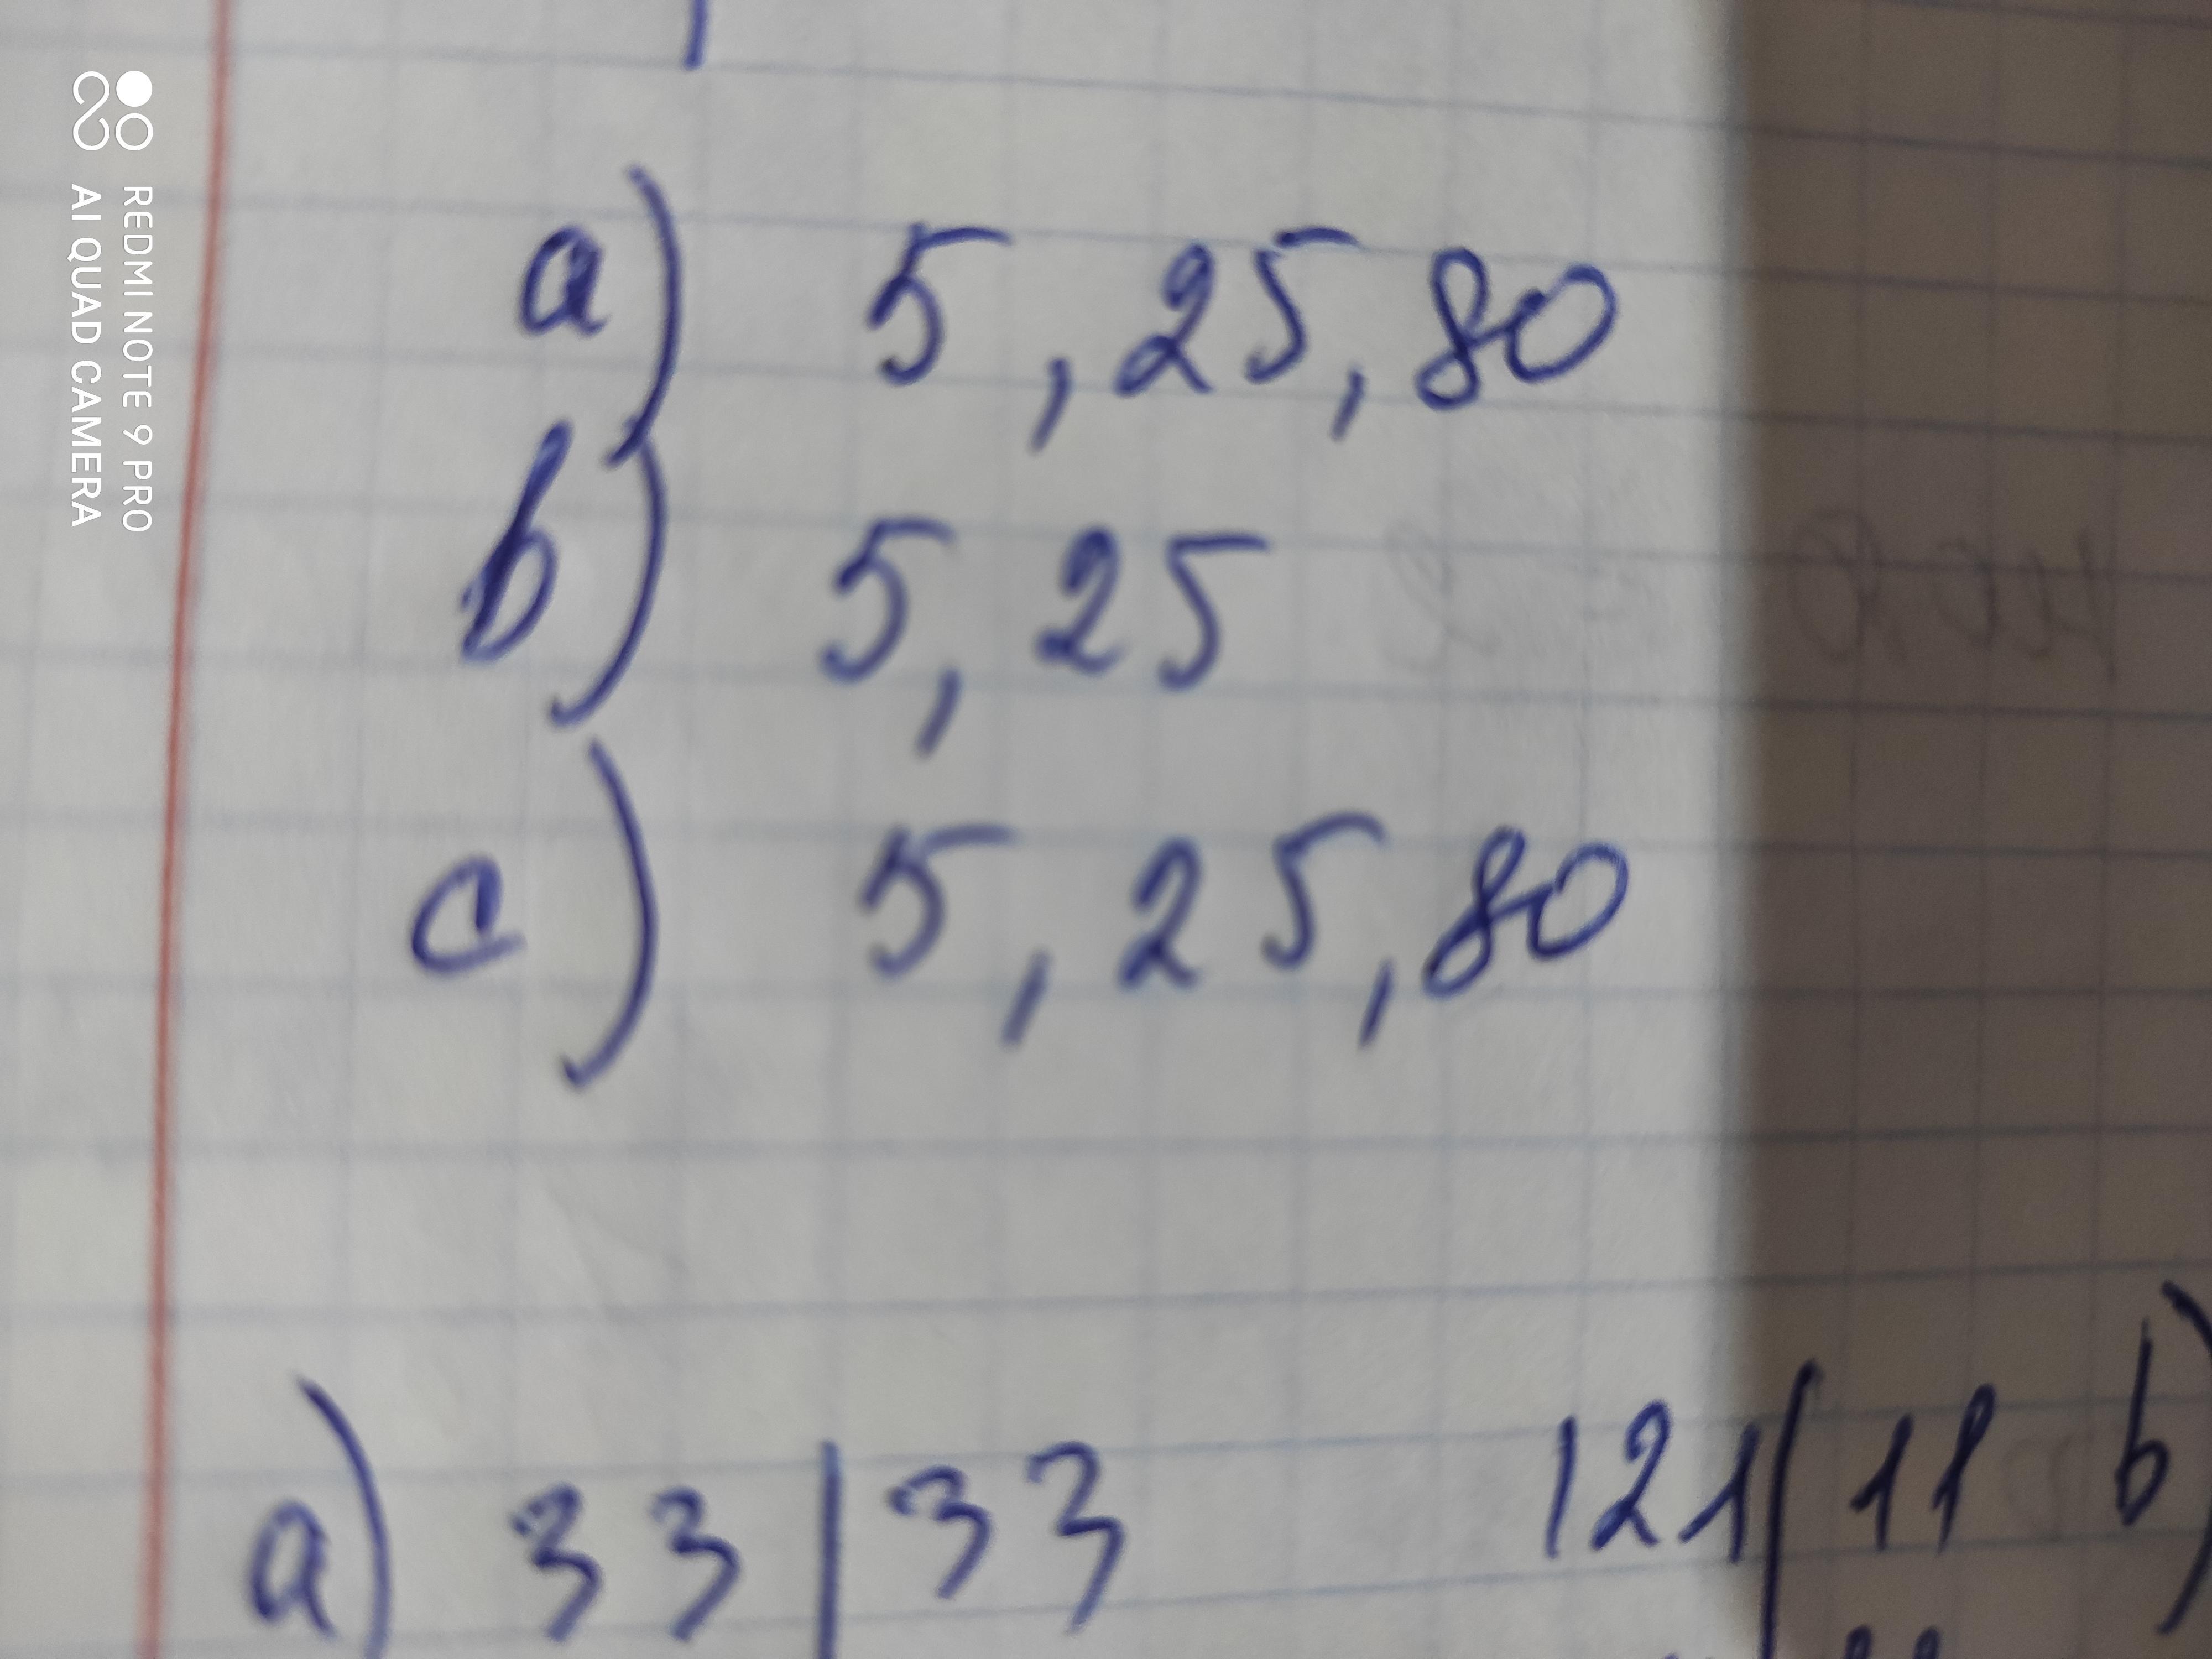 a) 5, 25, 80
b) 5, 25
c) 5, 25, 80
a) 33 | 33 121 | 11 b)
REDMI NOTE 9 PRO
AI QUAD CAMERA